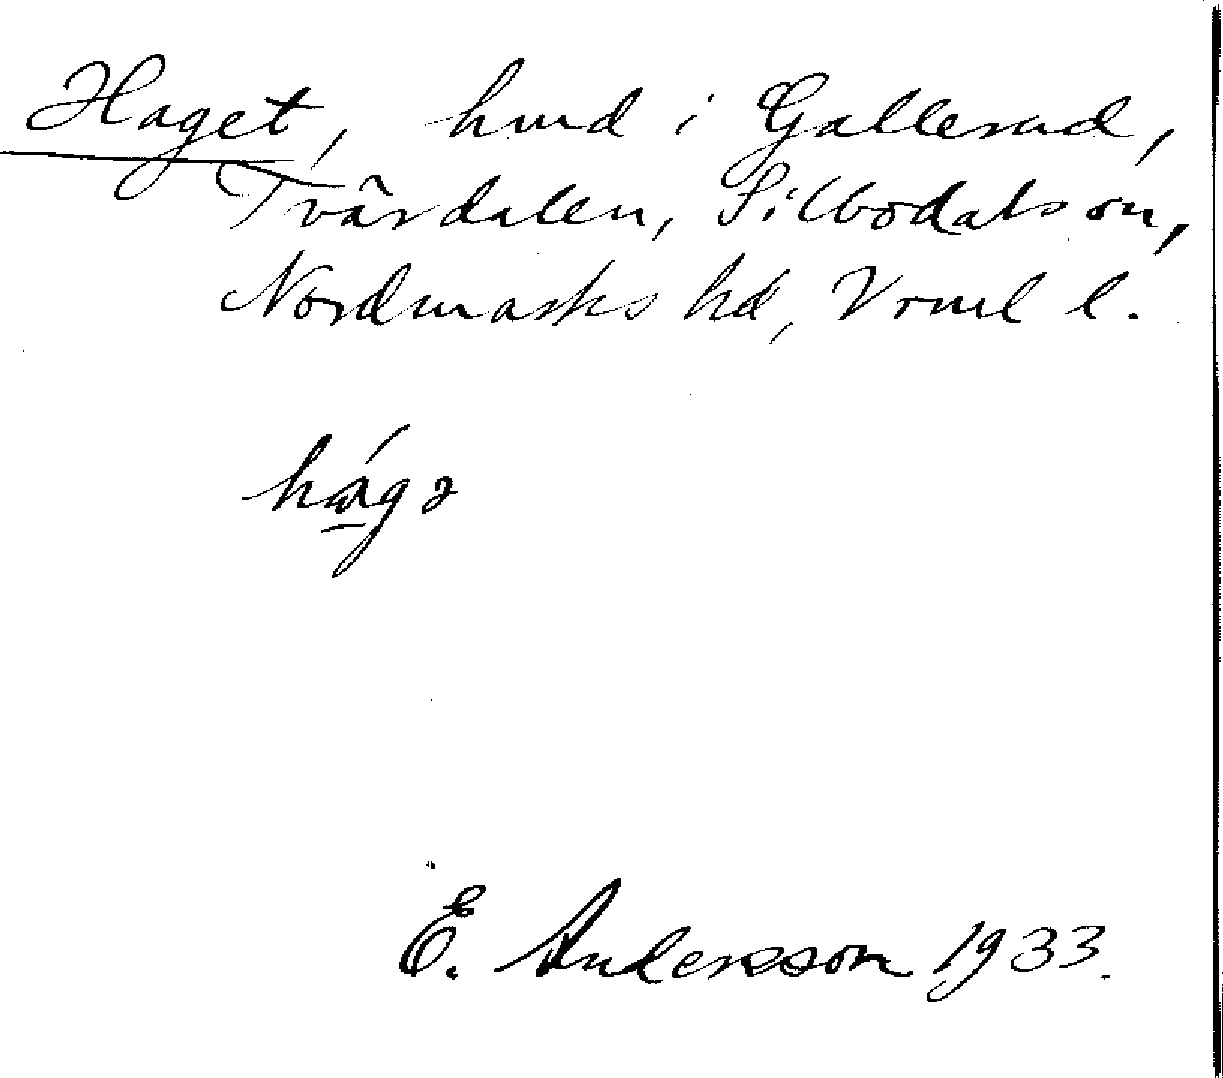 Haget, hmd i Gallerud,
Tvärdalen, Silbodals sn,
Nordmarks hd, Vrml l.
hágə
E. Andersson 1933.